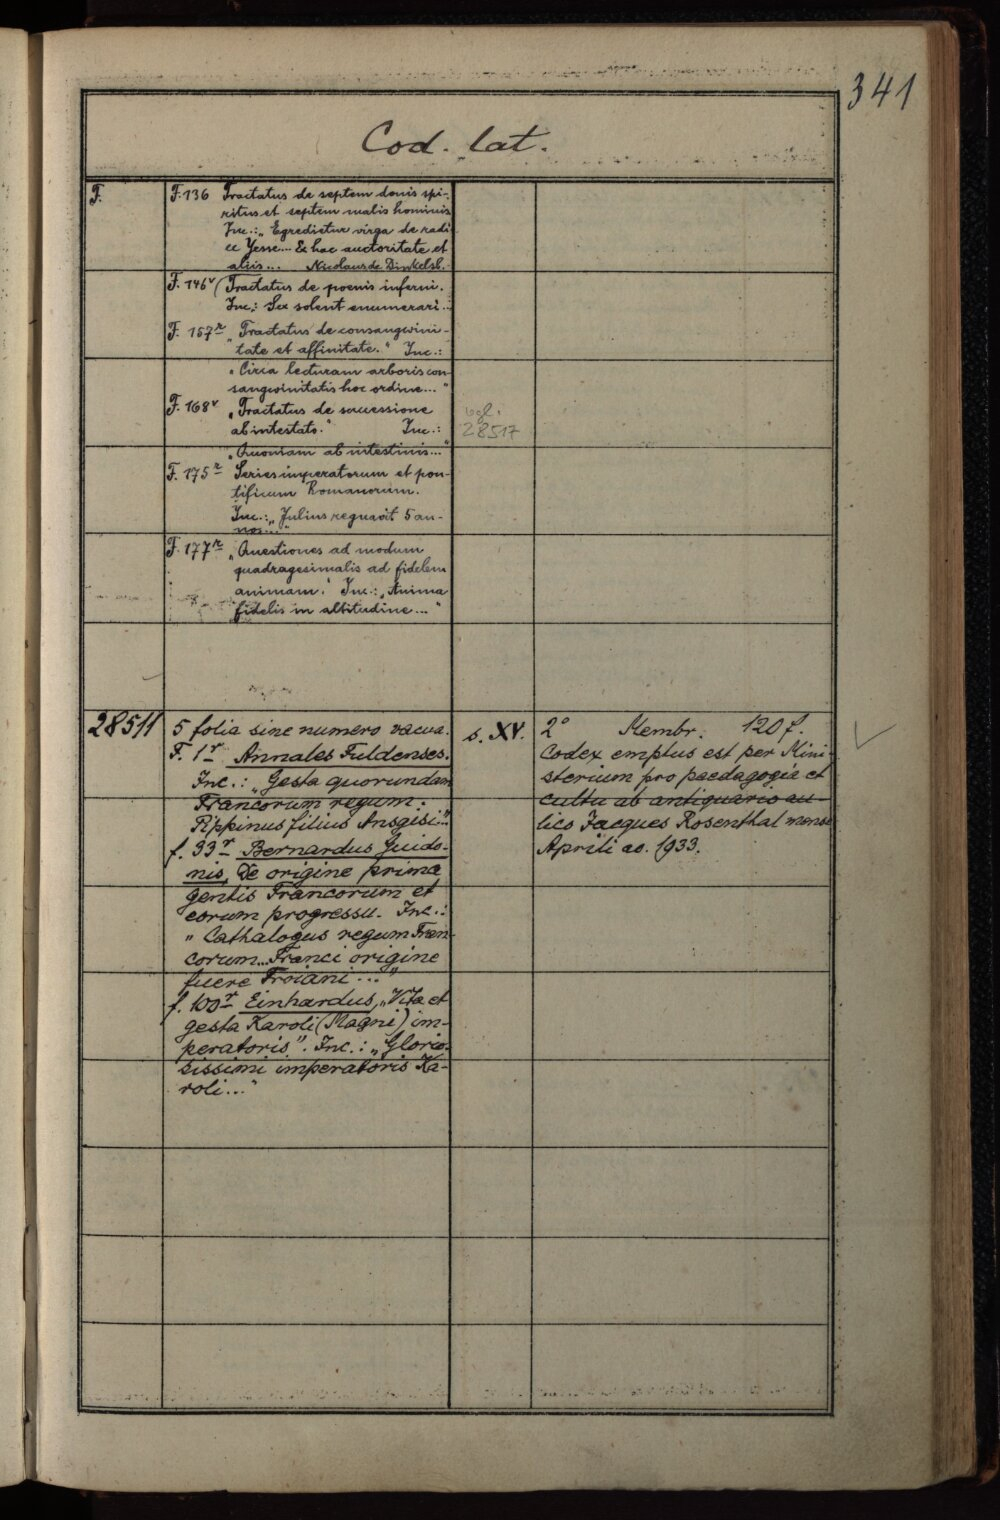 341
Cod. lat.
F.
F. 136 Tractatus de septem donis spi-
ritus et septem malis hominis
Inc.: „Egredietur virga de radi
ce Yesse... Ex hac auctoritate et
aliis... Nicolaus de Dinkelsb.
F. 146v (Tractatus de poenis inferni.
Inc.: Sex solent enumerari...
F. 157r „Tractatus de consangwini-
tate et affinitate." Inc.:
„Circa lecturam arboris con
sangwinitatis hoc ordine..."
F. 168v „Tractatus de successione
ab intestato." Inc.:
„Quoniam ab intestinis..."
vgl.
28517
F. 175r Series imperatorum et pon-
tificum Romanorum.
Inc.: „Julius regnavit 5 an-
nos..."
F. 177r „Questiones ad modum
quadragesimalis ad fidelem
animam." Inc.: „Anima
fidelis in altitudine..."
28511
5 folia sine numero vacua.
F. 1r Annales Fuldenses.
Inc.: „Gesta quorundam
Francorum regum.
Pippinus filius Ansgisi..."
f. 33r Bernardus Guido-
nis, De origine prima
gentis Francorum et
eorum progressu. Inc.:
„Cathalogus regum Fran-
corum... Franci origine
fuere Troiani..."
f. 100r Einhardus, „Vita et
gesta Karoli (Magni) im-
peratoris". Inc.: „Glorio-
sissimi imperatoris Ka-
roli..."
s. XV.
2° Membr. 120 f.
Codex emptus est per Mini-
sterium pro paedagogia et
cultu ab antiquario au-
lico Jacques Rosenthal mense
Aprili ao. 1933.